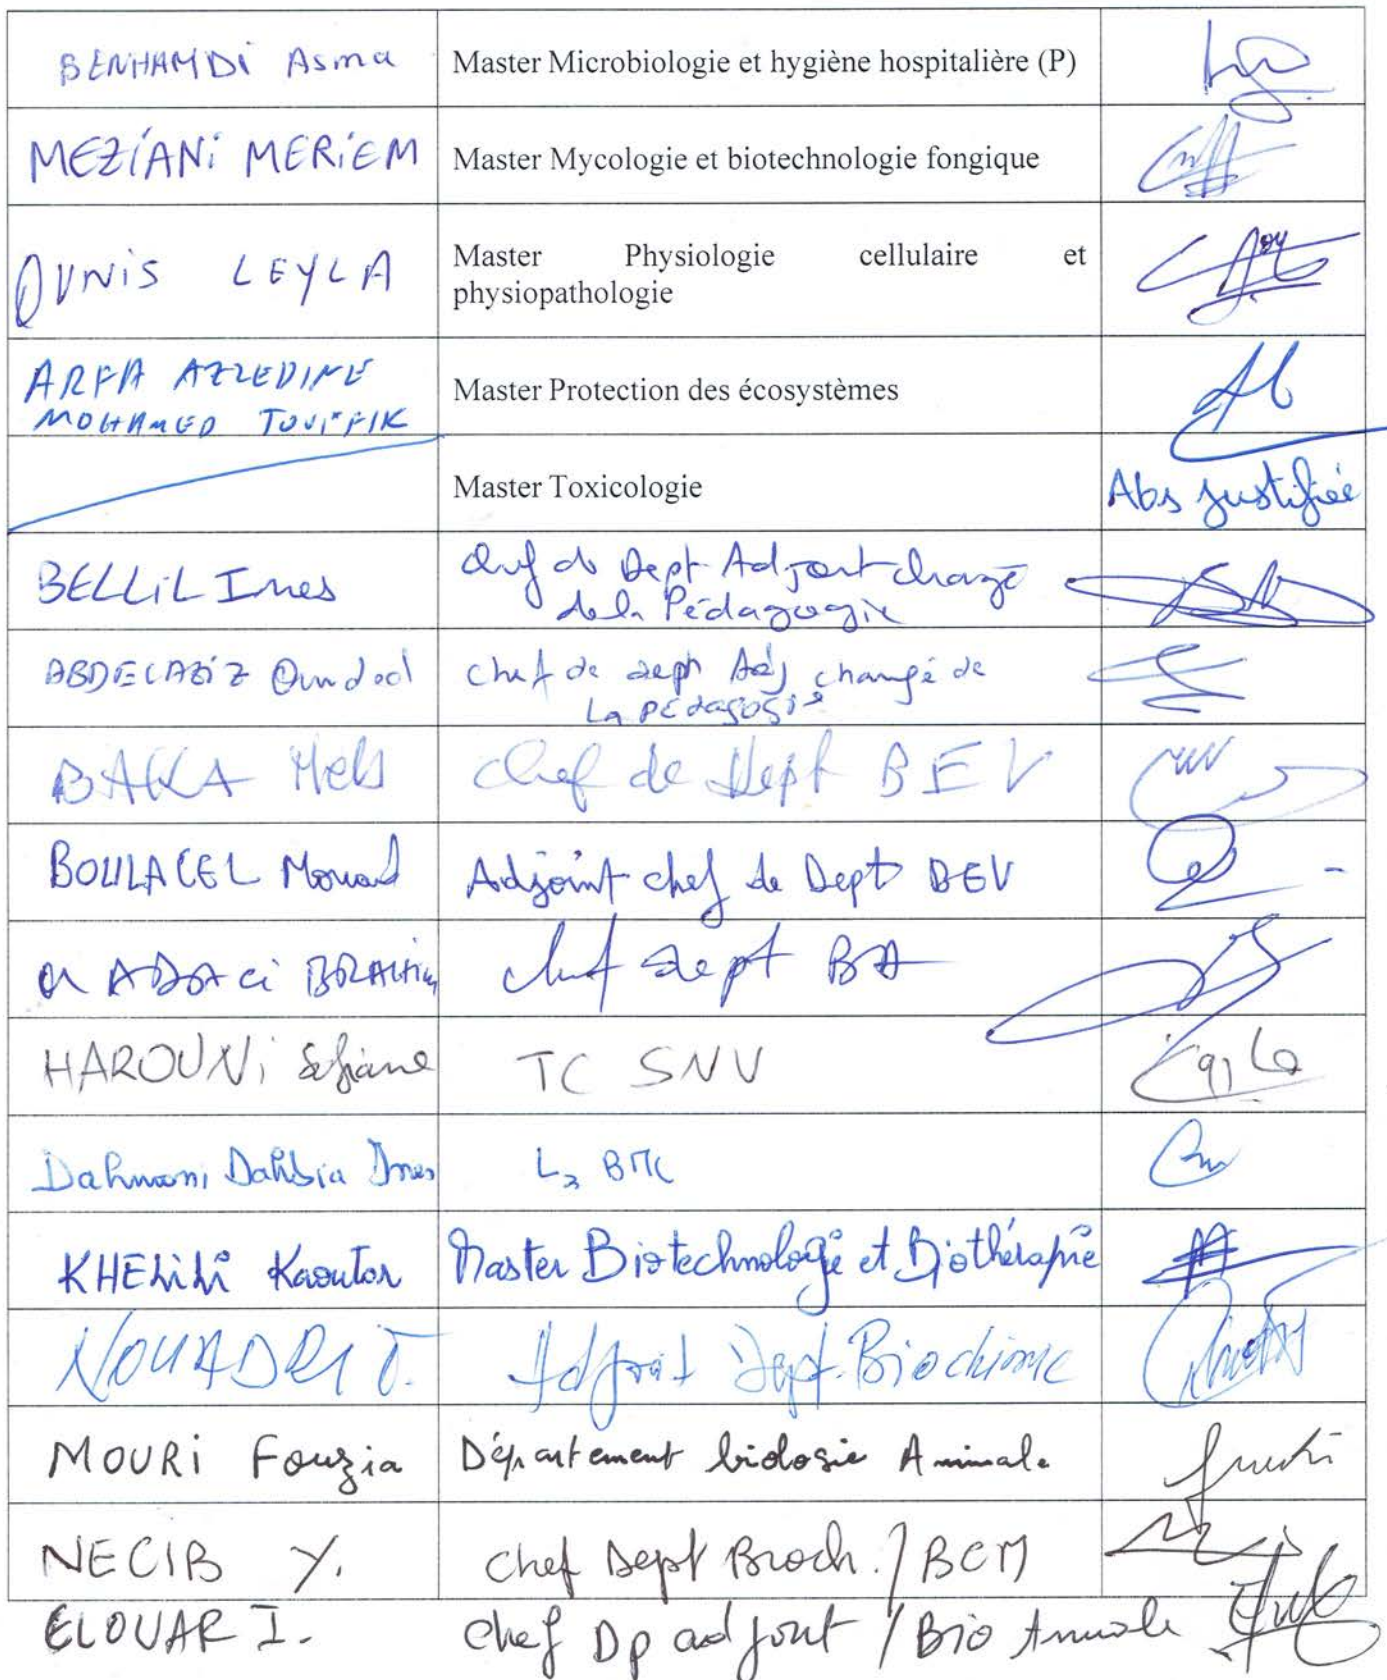 BENHAMDI Asma Master Microbiologie et hygiène hospitalière (P)
MEZIANI MERIEM Master Mycologie et biotechnologie fongique
OUNIS LEYLA Master Physiologie cellulaire et
physiopathologie
ARFA AZZEDINE Master Protection des écosystèmes
MOHAMED TOUFIK
Master Toxicologie Abs justifiée
BELLIL Ines Chef de Dept Adjoint chargé
de la Pédagogie
ABDELAZIZ chef de dept Adj chargé de
La pédagogie
BAKA chef de Dept BEV
BOULACEL Mouad Adjoint chef de Dept BEV
BRAHIM chef dept BA
HAROUNI Sofiane TC SNV
Dahmani Dahbia Ines L3 BMC
KHELILI Kaouter Master Biotechnologie et Biothérapie
NOUADRI T. Adjoint Dept. Biochimie
MOURI Fouzia Département biologie Animale
NECIB Y. chef Dept Bioch. / BCM
ELOUAR I. chef Dp adjoint / Bio Animale